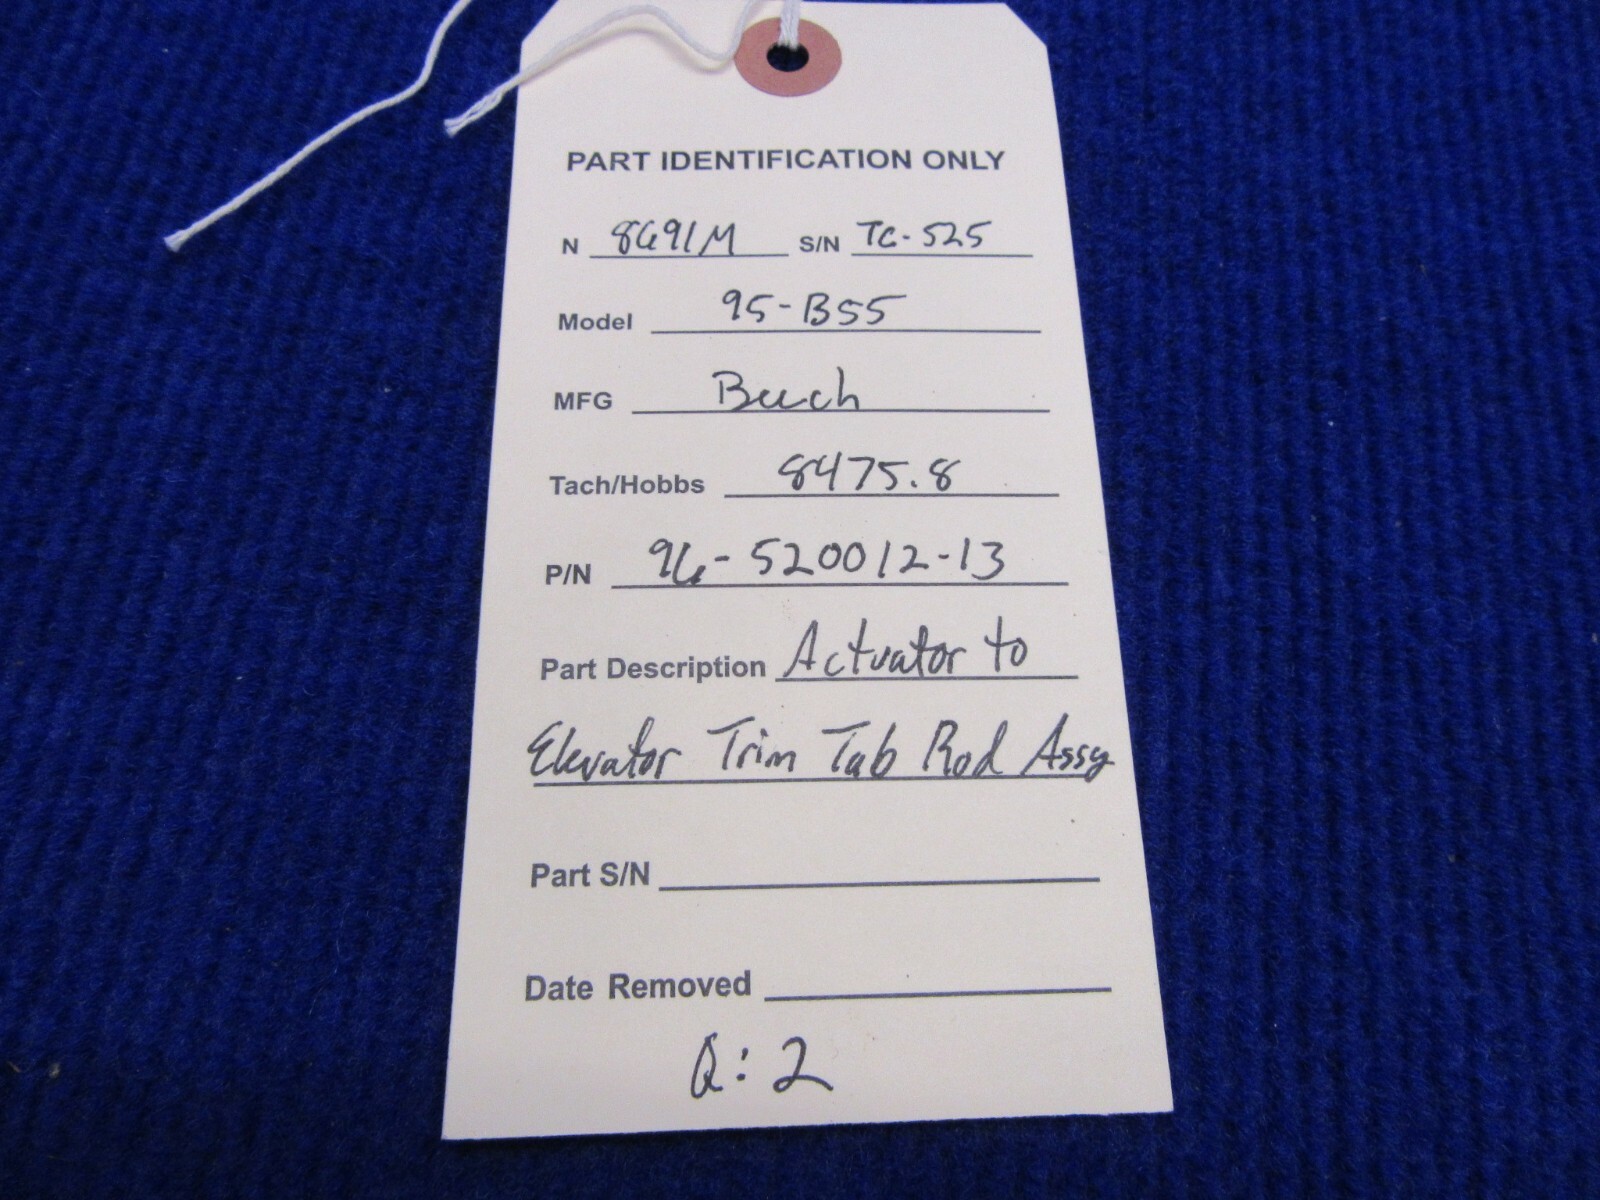 PART IDENTIFICATION ONLY
N 8691M S/N TC-525
Model 95-B55
MFG Beech
Tach/Hobbs 8475.8
P/N 96-520012-13
Part Description Actuator to
Elevator Trim Tab Rod Assy
Part S/N
Date Removed
Q: 2